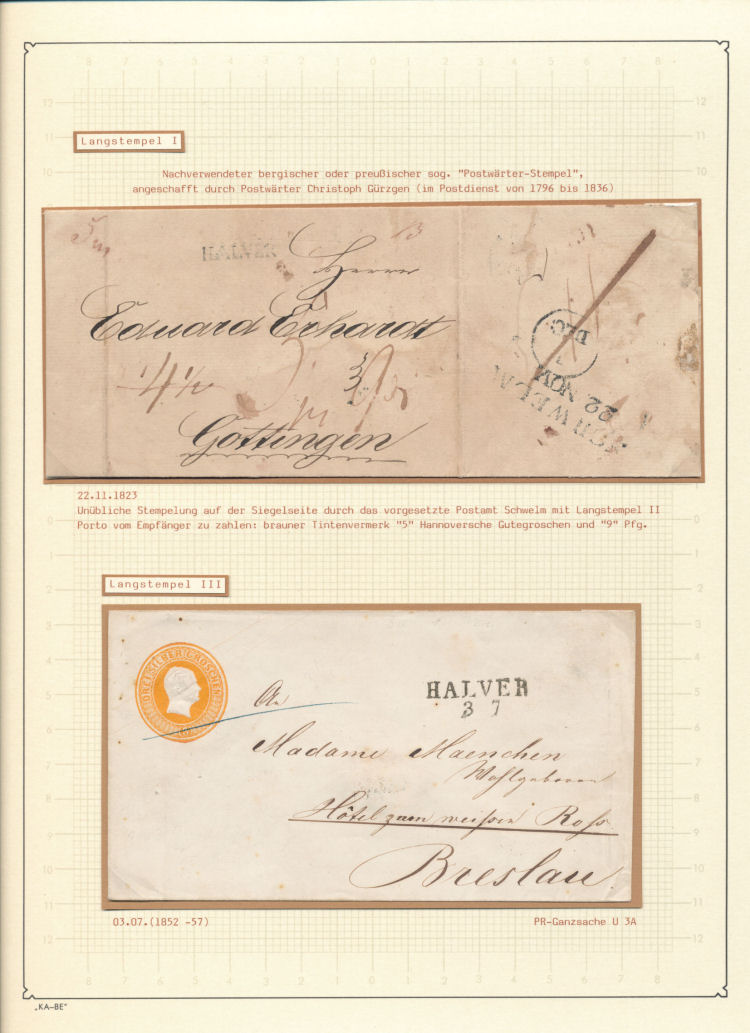 Langstempel I
Nachverwendeter bergischer oder preußischer sog. "Postwärter-Stempel",
angeschafft durch Postwärter Christoph Gürzgen (im Postdienst von 1796 bis 1836)
HALVER
Herrn
Eduard Erhardt
4½
Göttingen
DEC.
SCHWELM
22 NOV
22.11.1823
Unübliche Stempelung auf der Siegelseite durch das vorgesetzte Postamt Schwelm mit Langstempel II
Porto vom Empfänger zu zahlen: brauner Tintenvermerk "5" Hannoversche Gutegroschen und "9" Pfg.
Langstempel III
DREI SILBERGROSCHEN
HALVER
3 7
An
Madame Maenchen
Wohlgeboren
Hôtel zum weißen Roß
Breslau
03.07.(1852 -57)
PR-Ganzsache U 3A
„KA–BE"